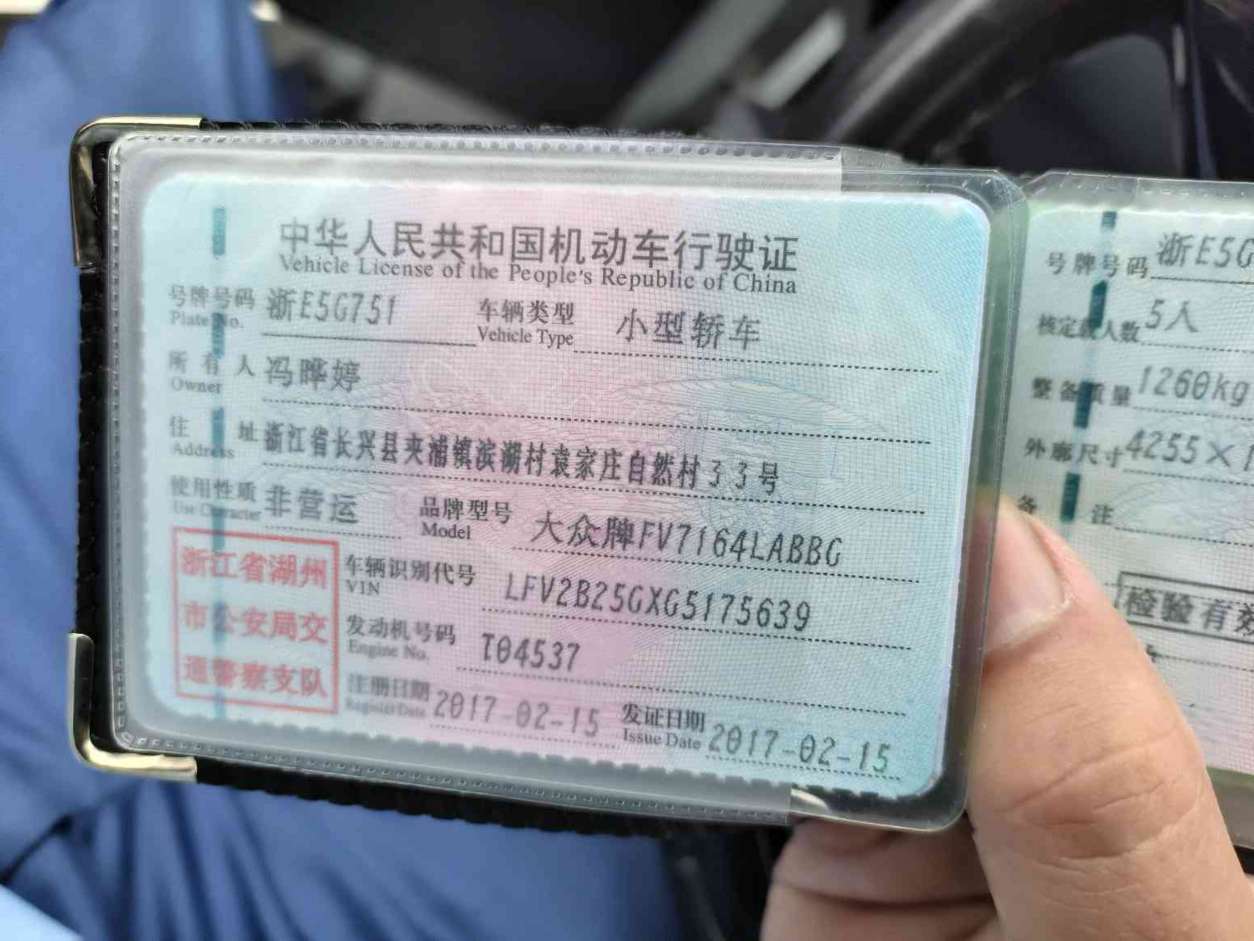 中华人民共和国机动车行驶证
Vehicle License of the People's Republic of China
号牌号码 浙E5G751 车辆类型 小型轿车
Plate No. Vehicle Type
所有人 冯晔婷
Owner
住址 浙江省长兴县夹浦镇滨湖村袁家庄自然村33号
Address
使用性质 非营运 品牌型号 大众牌FV7164LABBG
Use Character Model
浙江省湖州
市公安局交
通警察支队
车辆识别代号 LFV2B25GXG5175639
VIN
发动机号码 T04537
Engine No.
注册日期 2017-02-15 发证日期 2017-02-15
Register Date Issue Date
号牌号码 浙E5G
核定载人数 5人
整备质量 1260kg
外廓尺寸 4255×1
备注
检验有效